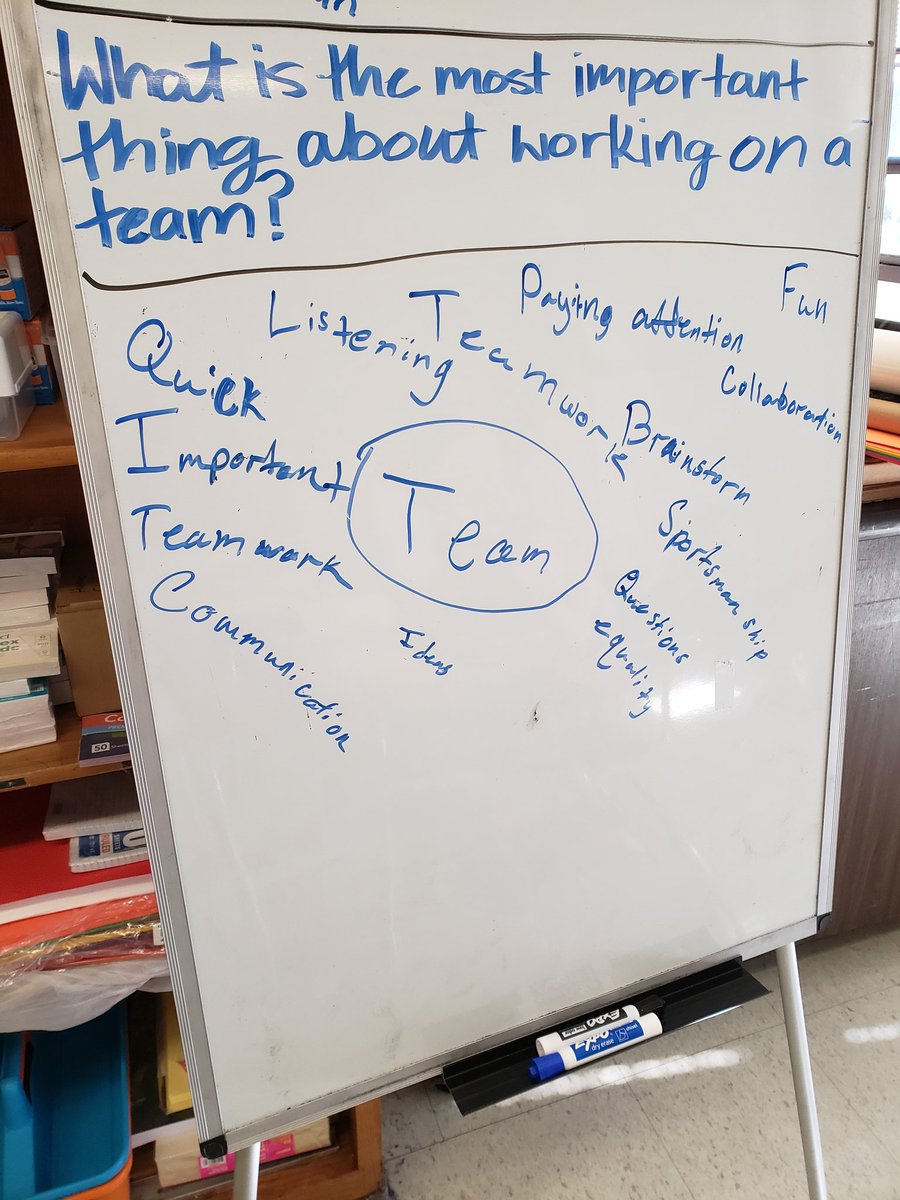 What is the most important
thing about working on a
team?
Paying attention
Fun
Listening
Teamwork
Collaboration
Quick
Brainstorm
Important
Team
Sportsmanship
Teamwork
Questions
equality
Communication
Ideas
50
EXPO
EXPO
dry erase
chisel